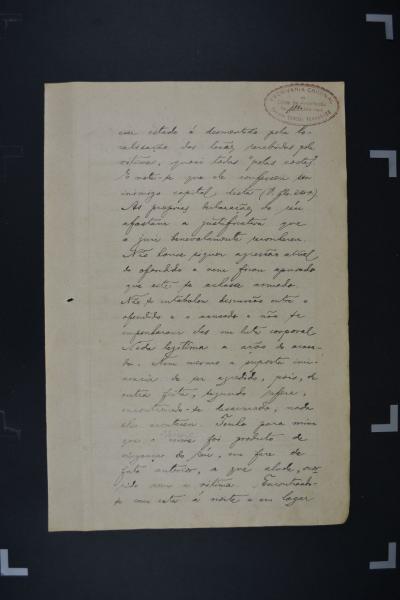 ESCRIVANIA CRIMINAL
esse estado é desmentido pela lo-
calisação das lesões recebidas pela
victima, quasi todas "pelas costas".
E note-se que elle confessou ser
inimigo capital desta (V. fls.
As proprias declarações do réu
afastam a justificativa que
o jury benevolamente reconheceu.
Não houve siquer aggressão actual
do offendido e nem ficou apurado
que este se achasse armado.
Não se entabolou discussão entre o
offendido e o accusado e não se
empenharam elles em luta corporal.
Nada legitima a acção do accusa-
do. Nem mesmo a supposta immi-
nencia de ser aggredido, pois, de
outra feita, segundo refere,
encontrando-se desarmado, nada
lhe aconteceu. Tenho para mim
que o crime foi producto de
vingança do réu, em face de
facto anterior, a que allude, occor-
rido com a victima. Encontrando-
se com esta á noite e em logar